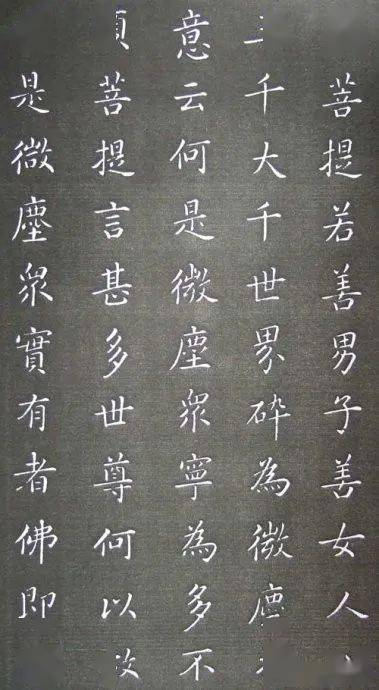 菩提若善男子善女人
千大千世界碎為微塵
意云何是微塵眾寧為多不
菩提言甚多世尊何以
是微塵眾實有者佛即